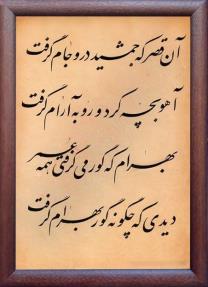 آن قصر که جمشید در و جام گرفت
آهو بچه کرد و رو به آرام گرفت
بهرام که گور می گرفتی همه عمر
دیدی که چگونه گور بهرام گرفت